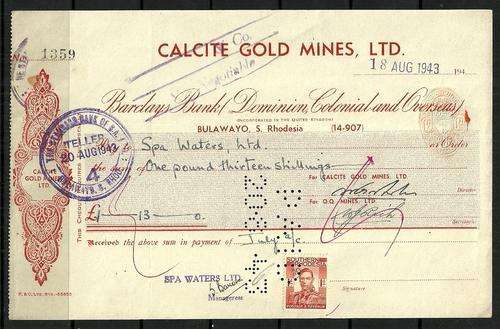 CALCITE GOLD MINES, LTD.
Co.
Negotiable
No 1359
18 AUG 1943 194
Barclays Bank (Dominion, Colonial and Overseas)
(INCORPORATED IN THE UNITED KINGDOM)
BULAWAYO, S. Rhodesia (14-907)
THE STANDARD BANK OF S.A. LTD
TELLER
20 AUG 1943
4
BULAWAYO, S. RHOD.
Spa Waters, Ltd. or Order
the sum of One pound thirteen shillings
CALCITE
GOLD MINES
LTD.
For CALCITE GOLD MINES, LTD.
Director.
For D.O. MINES, LTD.
£1-13-0.
Secretaries.
Received the above sum in payment of July a/c
SPA WATERS LTD.
Manageress
SOUTHERN
RHODESIA
POSTAGE & REVENUE
Signature